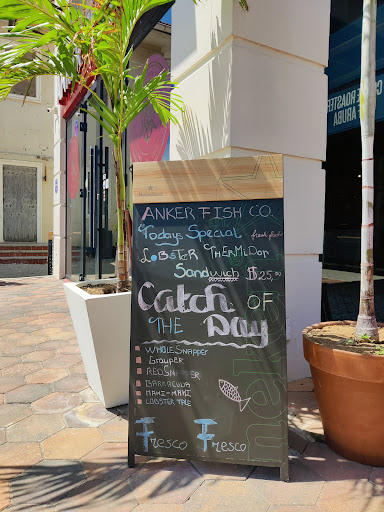 COFFEE ROASTER
OF ARUBA
ANKER FISH CO.
Todays Special
fresh fish
LOBSTER THERMIDOR
Sandwich $25,00
Catch OF
THE Day
WHOLE SNAPPER
GROUPER
RED SNAPPER
BARRACUDA
MAHI-MAHI
LOBSTER TALE
Fresco Fresco